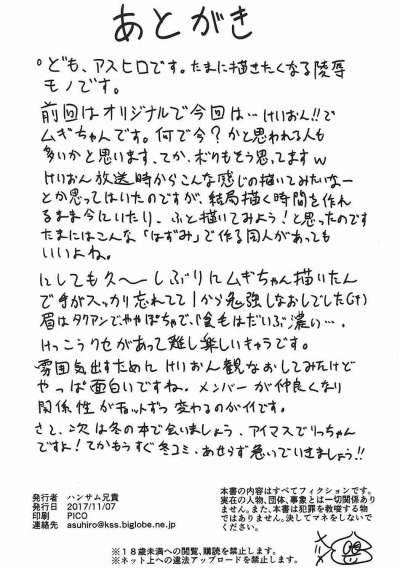 あとがき
ども、アスヒロです。たまに描きたくなる陵辱
モノです。
前回はオリジナルで今回は…けいおん!!で
ムギちゃんです。何で今?かと思われる人も
多いかと思います、てか、ボクもそう思ってますw
けいおん放送時からこんな感じの描いてみたいなー
とか思ってはいたのですが、結局描く時間を作れ
るまま今にいたり、ふと描いてみよう!と思ったのです
たまにはこんな「はずみ」で作る同人があっても
いいよね。
にしても久〜しぶりにムギちゃん描いたん
で手がスッカリ忘れてて1から勉強しなおしでした(汗)
眉はタクアンでややぽちゃで、陰毛はだいぶ濃い…、
けっこうクセがあって難し楽しいキャラです。
雰囲気出すためにけいおん観なおしてみたけど
やっぱ面白いですね。メンバーが仲良くなり
関係性がチョットずつ変わるのがイイです。
さて、次は冬の本で会いましょう、アイマスでりっちゃん
ですよ!てかもうすぐ冬コミ、あせらず急いでいきましょう!!
発行者 ハンサム兄貴
発行日 2017/11/07
印刷 PICO
連絡先 asuhiro@kss.biglobe.ne.jp
本書の内容はすべてフィクションです。
実在の人物、団体、事象とは一切関係あり
ません。また、本書は犯罪を教唆する物
ではありません。決してマネをしないで
ください。
※18歳未満への閲覧、購読を禁止します。
※ネット上への違法アップロードを禁止します。